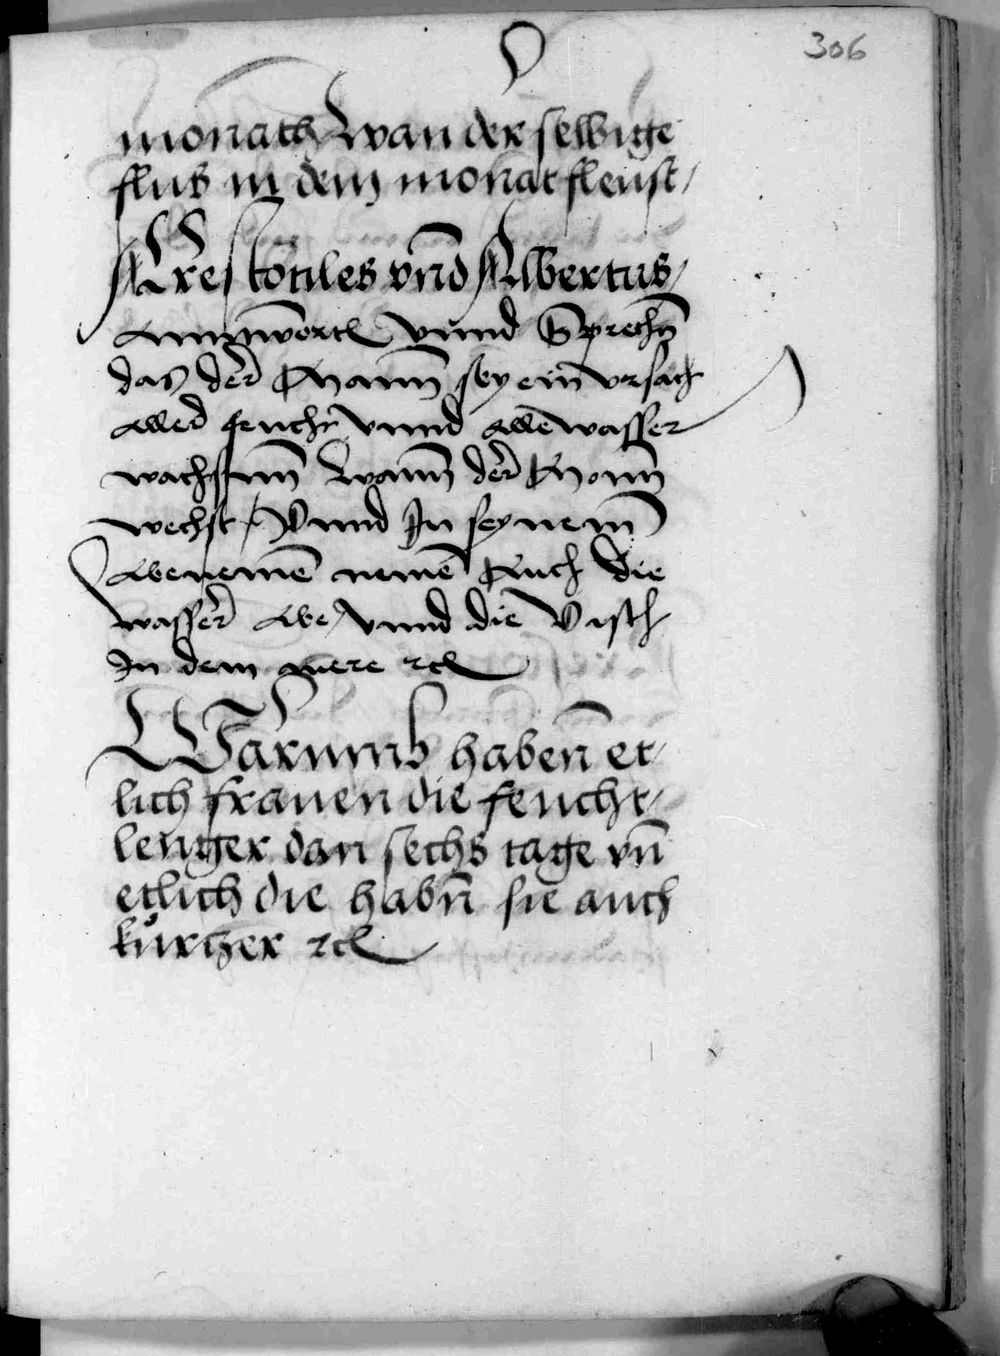 306
monath wan der selbige
flus in dem monat fleust /
Arestotiles vnd Albertus /
Anntwortt Vnnd Sprechn̄
das der Mann sey ein vrsach
aller feucht vnnd alle wasser
wachssenn wann der Monn
wechst / Vnnd In seynem
Abenemē nemē Auch die
wasser abe / vnnd die Visch
In dem mere ꝛc
Warumb habenn̄ et /
lich frauen die feucht /
lenger dan sechs tage vn̄
etlich die habn̄ sie auch
kůrtzer ꝛc